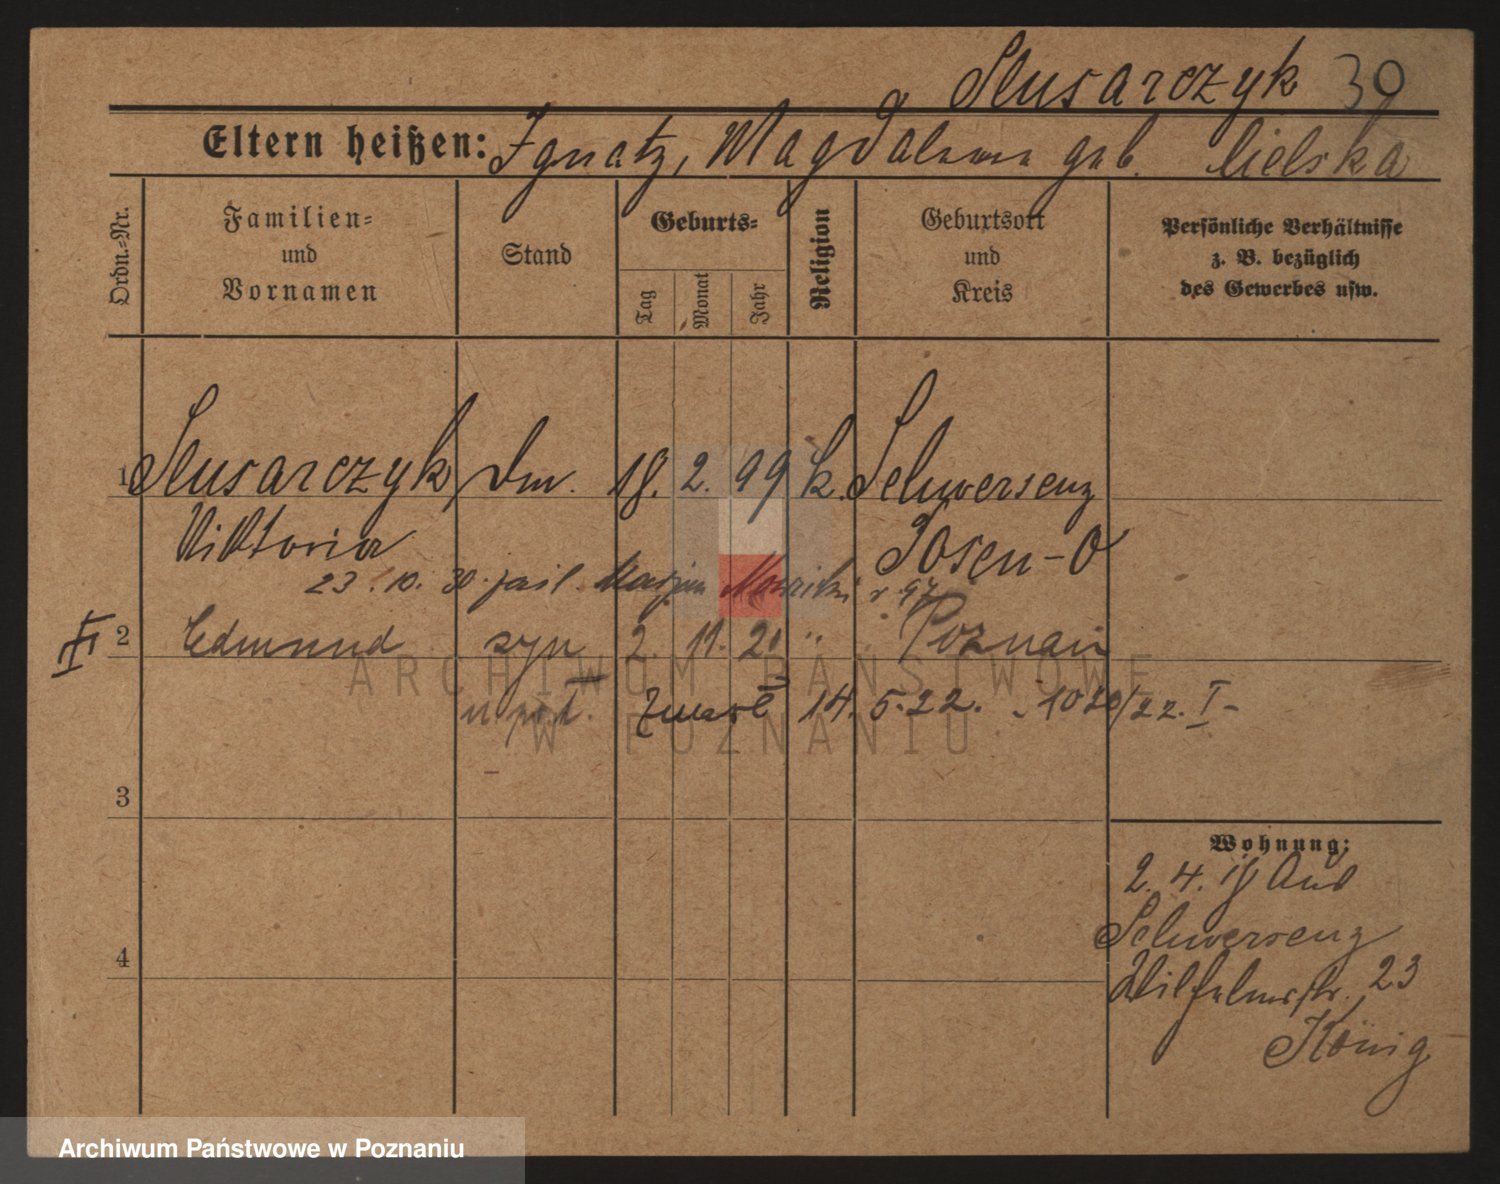 Slusarczyk 30
Eltern heißen: Ignatz, Magdalena geb. Cielska
Ordn.-Nr.
Familien- und Vornamen
Stand
Geburts-
Tag
Monat
Jahr
Religion
Geburtsort und Kreis
Persönliche Verhältnisse
z. B. bezüglich
des Gewerbes usw.
1 Slusarczyk Dm. 18. 2. 99 k. Schwersenz
Viktoria Posen-O
23. 10. 30. jast v 97
II 2 Edmund syn 2. 11. 20 " Poznań
Zmarł 14. 5. 22. 1020/22. I-
3
4
Wohnung:
2. 4. 19 Aus
Schwersenz
Wilhelmstr. 23
König
ARCHIWUM PAŃSTWOWE
W POZNANIU
Archiwum Państwowe w Poznaniu